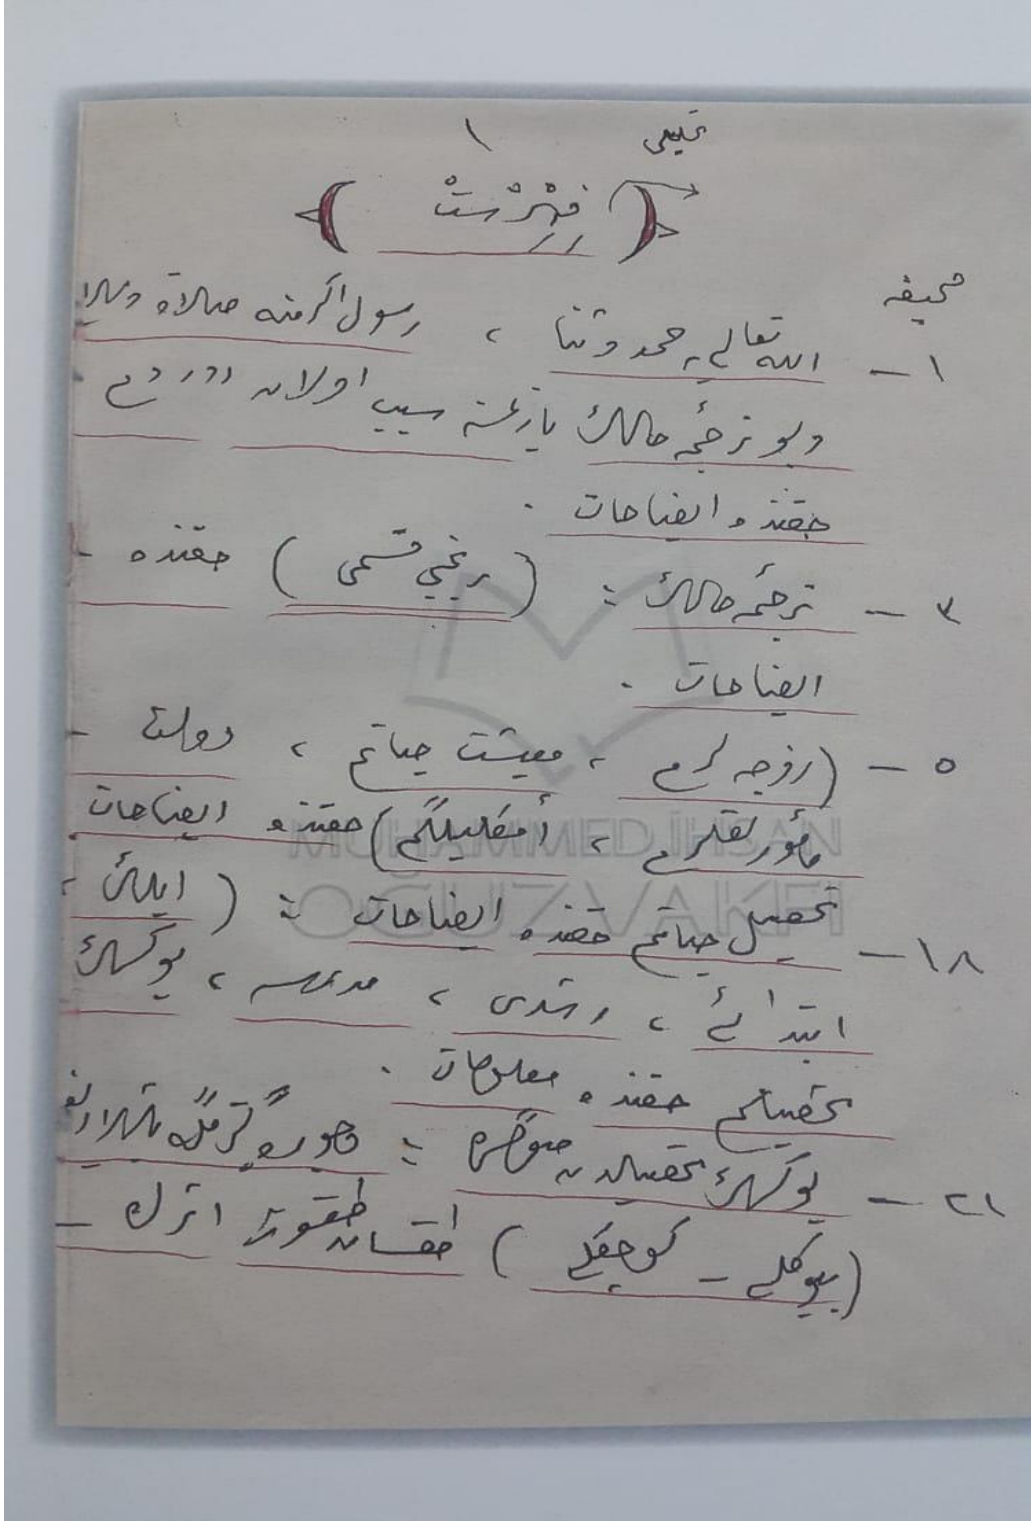 ١
﴿ فِهْرِسْتْ ﴾
صحيفه
١ – الله تعالى يه حمد و ثنا ، رسول اكرمنه صلاة و سلام
و بو ترجمهٔ حالك يازلمسنه سبب اولان
حقنده ايضاحات .
٣ – ترجمهٔ حالك : ( برنجى قسمى ) حقنده –
ايضاحات .
٥ – ( زوجه لرم ، معيشت حياتم ، دولت –
مأمورلقلرم ، أمكليلكم ) حقنده ايضاحات
١٨ – تحصيل حياتم حقنده ايضاحات : ( ايلك ،
ابتدائى ، رشدى ، مدرسه ، يوكسك
تحصيلم حقنده معلومات .
٢١ – يوكسك تحصيلدن صوكره : وجوده كتيرمكه باشلاديغم
( بيوكلى – كوچكلى ) طقسان طقوز اثرك –
MUHAMMED İHSAN
OĞUZ VAKFI